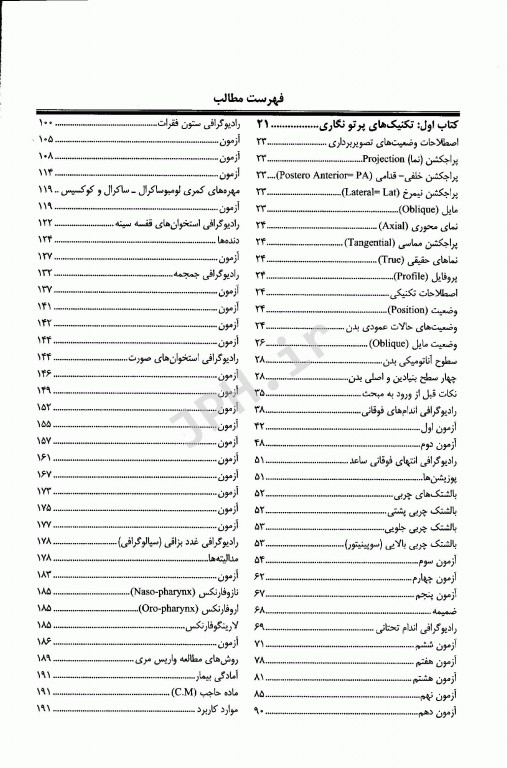 فهرست مطالب
کتاب اول: تکنیک‌های پرتو نگاری ................. ۲۱
اصطلاحات وضعیت‌های تصویربرداری ................. ۲۳
پراجکشن (نما) Projection ................. ۲۳
پراجکشن خلفی- قدامی (Postero Anterior= PA) .... ۲۳
پراجکشن نیمرخ (Lateral= Lat) ................. ۲۳
مایل (Oblique) ................. ۲۳
نمای محوری (Axial) ................. ۲۴
پراجکشن مماسی (Tangential) ................. ۲۴
نماهای حقیقی (True) ................. ۲۴
پروفایل (Profile) ................. ۲۴
اصطلاحات تکنیکی ................. ۲۴
وضعیت (Position) ................. ۲۴
وضعیت‌های حالات عمودی بدن ................. ۲۴
وضعیت مایل (Oblique) ................. ۲۶
سطوح آناتومیکی بدن ................. ۲۸
چهار سطح بنیادین و اصلی بدن ................. ۲۸
نکات قبل از ورود به مبحث ................. ۳۵
رادیوگرافی اندام‌های فوقانی ................. ۳۸
آزمون اول ................. ۴۲
آزمون دوم ................. ۴۸
رادیوگرافی انتهای فوقانی ساعد ................. ۵۱
پوزیشن‌ها ................. ۵۱
بالشتک‌های چربی ................. ۵۲
بالشتک چربی پشتی ................. ۵۲
بالشتک چربی جلویی ................. ۵۳
بالشتک چربی بالایی (سوپینیتور) ................. ۵۳
آزمون سوم ................. ۵۴
آزمون چهارم ................. ۶۲
آزمون پنجم ................. ۶۷
ضمیمه ................. ۶۸
رادیوگرافی اندام تحتانی ................. ۶۹
آزمون ششم ................. ۷۱
آزمون هفتم ................. ۷۸
آزمون هشتم ................. ۸۱
آزمون نهم ................. ۸۵
آزمون دهم ................. ۹۰
رادیوگرافی ستون فقرات ................. ۱۰۰
آزمون ................. ۱۰۵
آزمون ................. ۱۰۸
آزمون ................. ۱۱۴
مهره‌های کمری لومبوساکرال ـ ساکرال و کوکسیس .. ۱۱۹
آزمون ................. ۱۱۹
رادیوگرافی استخوان‌های قفسه سینه ................. ۱۲۲
دنده‌ها ................. ۱۲۴
آزمون ................. ۱۲۷
رادیوگرافی جمجمه ................. ۱۳۲
آزمون ................. ۱۳۷
آزمون ................. ۱۴۱
آزمون ................. ۱۴۲
آزمون ................. ۱۴۴
رادیوگرافی استخوان‌های صورت ................. ۱۴۴
آزمون ................. ۱۴۶
آزمون ................. ۱۴۹
آزمون ................. ۱۵۲
آزمون ................. ۱۵۵
آزمون ................. ۱۵۷
آزمون ................. ۱۶۱
آزمون ................. ۱۶۷
آزمون ................. ۱۷۳
آزمون ................. ۱۷۵
آزمون ................. ۱۷۷
رادیوگرافی غدد بزاقی (سیالوگرافی) ................. ۱۷۸
مدالیته‌ها ................. ۱۷۸
آزمون ................. ۱۸۳
نازوفارنکس (Naso-pharynx) ................. ۱۸۵
اروفارنکس (Oro-pharynx) ................. ۱۸۵
لارینگوفارنکس ................. ۱۸۵
آزمون ................. ۱۸۶
روش‌های مطالعه واریس مری ................. ۱۸۹
آمادگی بیمار ................. ۱۹۱
ماده حاجب (C.M) ................. ۱۹۱
موارد کاربرد ................. ۱۹۱
JPH.ir